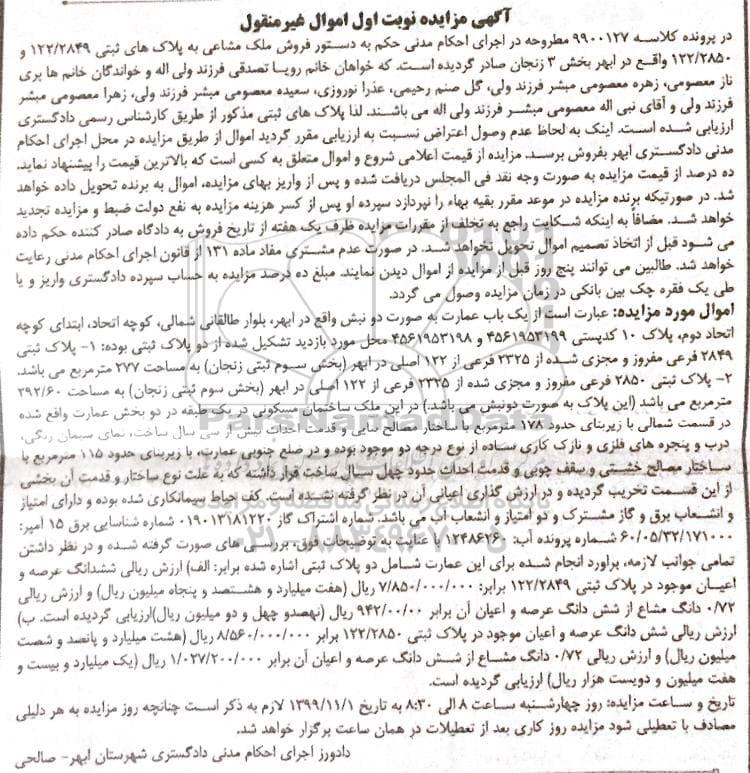 آگهی مزایده نوبت اول اموال غیرمنقول
در پرونده کلاسه ۹۹۰۰۱۲۷ مطروحه در اجرای احکام مدنی حکم به دستور فروش ملک مشاعی به پلاک های ثبتی ۱۲۲/۲۸۴۹ و
۱۲۲/۲۸۵۰ واقع در ابهر بخش ۳ زنجان صادر گردیده است. که خواهان خانم رویا تصدقی فرزند ولی اله و خواندگان خانم ها پری
ناز معصومی، زهره معصومی مبشر فرزند ولی، گل صنم رحیمی، عذرا نوروزی، سعیده معصومی مبشر فرزند ولی، زهرا معصومی مبشر
فرزند ولی و آقای نبی اله معصومی مبشر فرزند ولی اله می باشند. لذا پلاک های ثبتی مذکور از طریق کارشناس رسمی دادگستری
ارزیابی شده است. اینک به لحاظ عدم وصول اعتراض نسبت به ارزیابی مقرر گردید اموال از طریق مزایده در محل اجرای احکام
مدنی دادگستری ابهر بفروش برسد. مزایده از قیمت اعلامی شروع و اموال متعلق به کسی است که بالاترین قیمت را پیشنهاد نماید.
ده درصد از قیمت مزایده به صورت وجه نقد فی المجلس دریافت شده و پس از واریز بهای مزایده، اموال به برنده تحویل داده خواهد
شد. در صورتیکه برنده مزایده در موعد مقرر بقیه بهاء را نپردازد سپرده او پس از کسر هزینه مزایده به نفع دولت ضبط و مزایده تجدید
خواهد شد. مضافاً به اینکه شکایت راجع به تخلف از مقررات مزایده ظرف یک هفته از تاریخ فروش به دادگاه صادر کننده حکم داده
می شود قبل از اتخاذ تصمیم اموال تحویل نخواهد شد. در صورت عدم مشتری مفاد ماده ۱۳۱ از قانون اجرای احکام مدنی رعایت
خواهد شد. طالبین می توانند پنج روز قبل از مزایده از اموال دیدن نمایند. مبلغ ده درصد مزایده به حساب سپرده دادگستری واریز و یا
طی یک فقره چک بین بانکی در زمان مزایده وصول می گردد.
اموال مورد مزایده: عبارت است از یک باب عمارت به صورت دو نبش واقع در ابهر، بلوار طالقانی شمالی، کوچه اتحاد، ابتدای کوچه
اتحاد دوم، پلاک ۱۰ کدپستی ۴۵۶۱۹۵۳۱۹۹ و ۴۵۶۱۹۵۳۱۹۸ محل مورد بازدید تشکیل شده از دو پلاک ثبتی بوده: ۱- پلاک ثبتی
۲۸۴۹ فرعی مفروز و مجزی شده از ۲۳۲۵ فرعی از ۱۲۲ اصلی در ابهر (بخش سوم ثبتی زنجان) به مساحت ۲۷۷ مترمربع می باشد.
۲- پلاک ثبتی ۲۸۵۰ فرعی مفروز و مجزی شده از ۲۳۲۵ فرعی از ۱۲۲ اصلی در ابهر (بخش سوم ثبتی زنجان) به مساحت ۲۹۲/۶۰
مترمربع می باشد (این پلاک به صورت دونبش می باشد.) در این ملک ساختمان مسکونی در یک طبقه در دو بخش عمارت واقع شده
در قسمت شمالی با زیربنای حدود ۱۷۸ مترمربع با ساختار مصالح بنایی و قدمت احداث بیش از سی سال ساخت، نمای سیمان رنگی،
درب و پنجره های فلزی و نازک کاری ساده از نوع درجه دو موجود بوده و در ضلع جنوبی عمارت، با زیربنای حدود ۱۱۵ مترمربع با
ساختار مصالح خشتی و سقف چوبی و قدمت احداث حدود چهل سال ساخت قرار داشته که به علت نوع ساختار و قدمت آن بخشی
از این قسمت تخریب گردیده و در ارزش گذاری اعیانی آن در نظر گرفته نشده است. کف حیاط سیمانکاری شده بوده و دارای امتیاز
و انشعاب برق و گاز مشترک و دو امتیاز و انشعاب آب می باشد. شماره اشتراک گاز ۰۱۹۰۱۳۱۸۱۲۲۰ شماره شناسایی برق ۱۵ آمپر:
۶۰/۰۵/۳۲/۱۷۱۰۰۰ شماره پرونده آب: ۱۲۴۸۶۲۶۰ با عنایت به توضیحات فوق، بررسی های صورت گرفته شده و در نظر داشتن
تمامی جوانب لازمه، برآورد انجام شده برای این عمارت شامل دو پلاک ثبتی اشاره شده برابر: الف) ارزش ریالی ششدانگ عرصه و
اعیان موجود در پلاک ثبتی ۱۲۲/۲۸۴۹ برابر: ۷/۸۵۰/۰۰۰/۰۰۰ ریال (هفت میلیارد و هشتصد و پنجاه میلیون ریال) و ارزش ریالی
۰/۷۲ دانگ مشاع از شش دانگ عرصه و اعیان آن برابر ۹۴۲/۰۰/۰۰ ریال (نهصدو چهل و دو میلیون ریال)ارزیابی گردیده است. ب)
ارزش ریالی شش دانگ عرصه و اعیان موجود در پلاک ثبتی ۱۲۲/۲۸۵۰ برابر ۸/۵۶۰/۰۰۰/۰۰۰ ریال (هشت میلیارد و پانصد و شصت
میلیون ریال) و ارزش ریالی ۰/۷۲ دانگ مشاع از شش دانگ عرصه و اعیان آن برابر ۱/۰۲۷/۲۰۰/۰۰۰ ریال (یک میلیارد و بیست و
هفت میلیون و دویست هزار ریال) ارزیابی گردیده است.
تاریخ و ساعت مزایده: روز چهارشنبه ساعت ۸ الی ۸:۳۰ به تاریخ ۱۳۹۹/۱۱/۱ لازم به ذکر است چنانچه روز مزایده به هر دلیلی
مصادف با تعطیلی شود مزایده روز کاری بعد از تعطیلات در همان ساعت برگزار خواهد شد.
دادورز اجرای احکام مدنی دادگستری شهرستان ابهر- صالحی